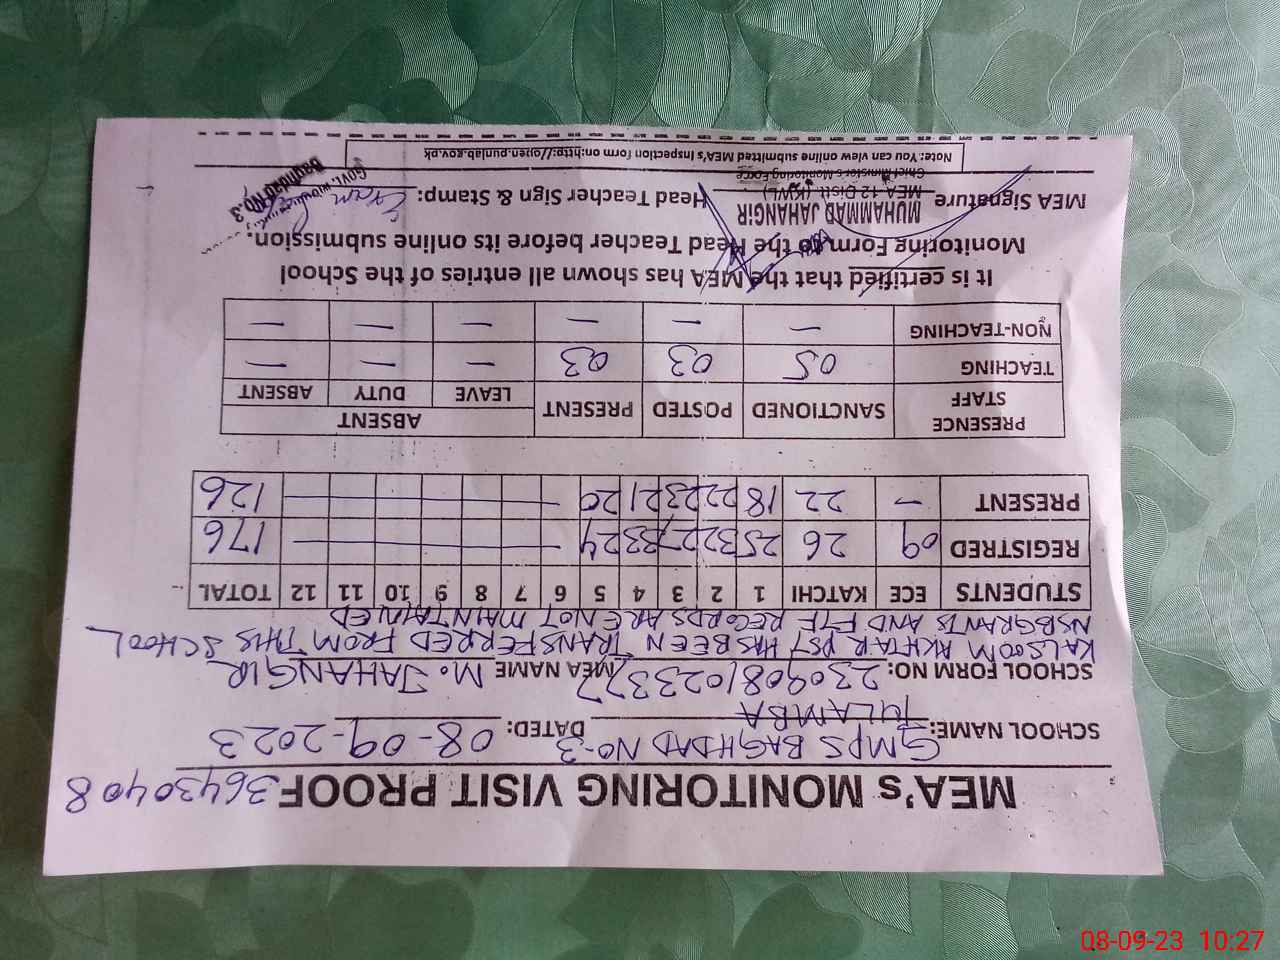 MEA's MONITORING VISIT PROOF 36430408
SCHOOL NAME: GMPS BAGHDAD NO-3 DATED: 08-09-2023
TULAMBA
SCHOOL FORM NO: 2309081023377 MEA NAME M. JAHANGIR
KALSOOM AKHTAR PST HAS BEEN TRANSFERRED FROM THIS SCHOOL
NSB GRANTS AND FTF RECORDS ARE NOT MAINTAINED
STUDENTS ECE KATCHI 1 2 3 4 5 6 7 8 9 10 11 12 TOTAL
REGISTRED 09 26 25 32 27 33 24 — 176
PRESENT — 22 18 22 23 21 20 — 126
PRESENCE STAFF SANCTIONED POSTED PRESENT ABSENT
LEAVE DUTY ABSENT
TEACHING 05 03 03 — — —
NON-TEACHING — — — — — —
It is certified that the MEA has shown all entries of the School
Monitoring Form to the Head Teacher before its online submission.
MEA Signature MUHAMMAD JAHANGIR Head Teacher Sign & Stamp:
MEA-12 Distt. (KWL)
Chief Minister's Monitoring Force
GOVT.
Baghdad No.3
Note: You can view online submitted MEA's Inspection form on:http://open.punjab.gov.pk
08-09-23 10:27